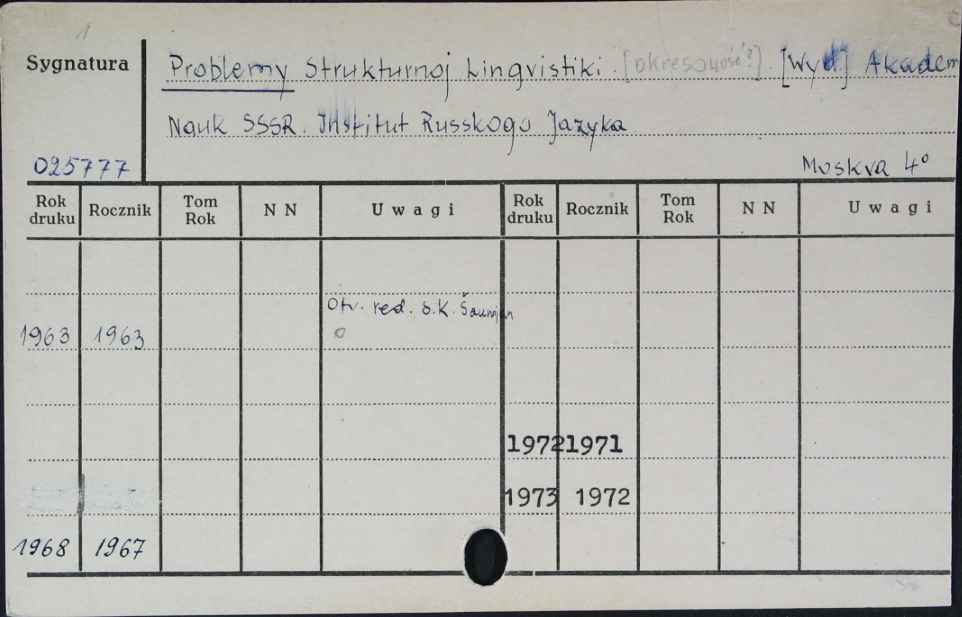 1
Sygnatura
Problemy Strukturnoj Lingvistiki. [okresowość?]. [Wyd] Akadem
Nauk SSSR. Institut Russkogo Jazyka
025777
Moskva 4°
Rok druku Rocznik Tom Rok N N Uwagi Rok druku Rocznik Tom Rok N N Uwagi
Otv. red. S.K. Šaumjan
1963 1963
1972 1971
1973 1972
1968 1967